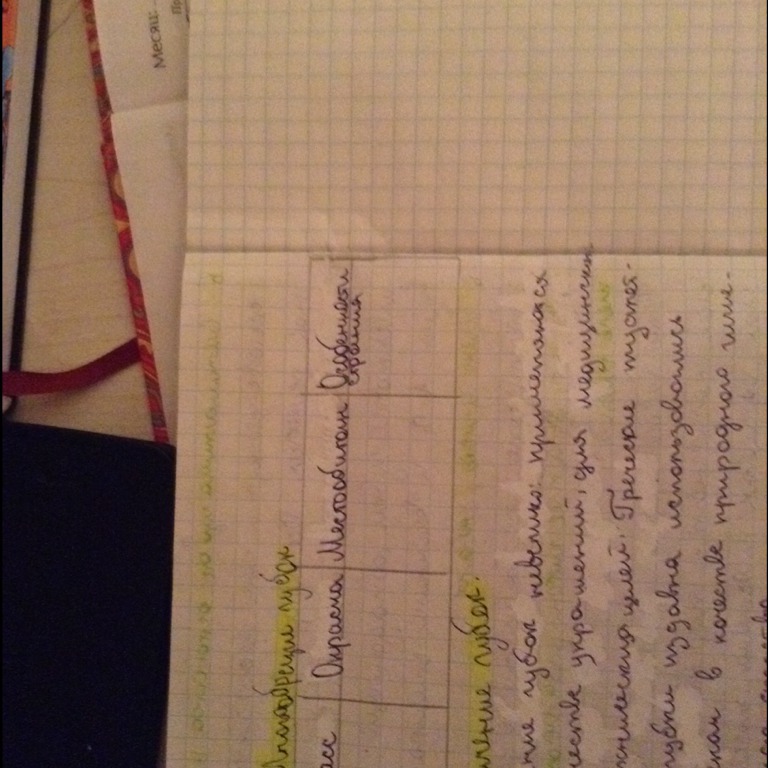 Месяц
Многообразие губок
асс Окраска Местообитан Особенности строения
чение губок.
ние губок невелико: применялася
честве украшений, для медицинских
хнических целей. Греческие туалет-
губки издавна использовались
в качестве природного гигие-